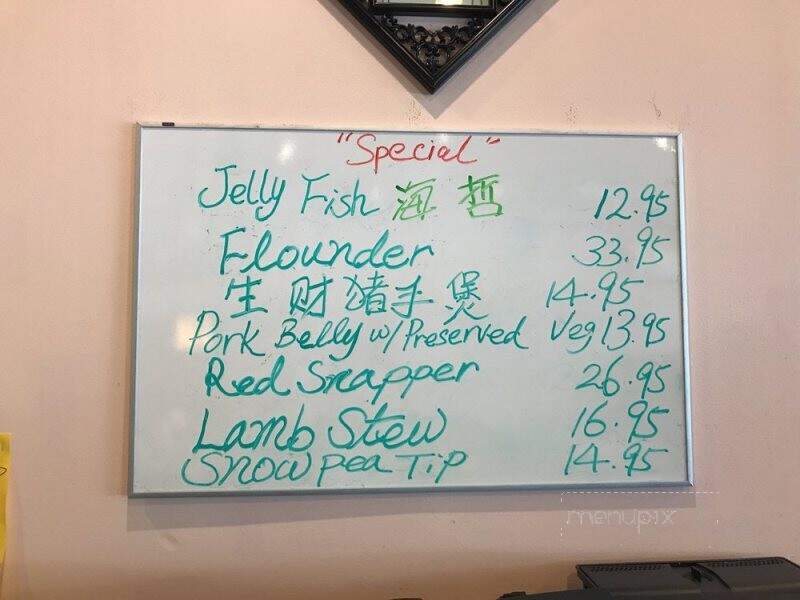 "Special"
Jelly Fish 海哲 12.95
Flounder 33.95
生财猪手煲 14.95
Pork Belly w/ Preserved Veg 13.95
Red Snapper 26.95
Lamb Stew 16.95
Snow pea Tip 14.95
menupix